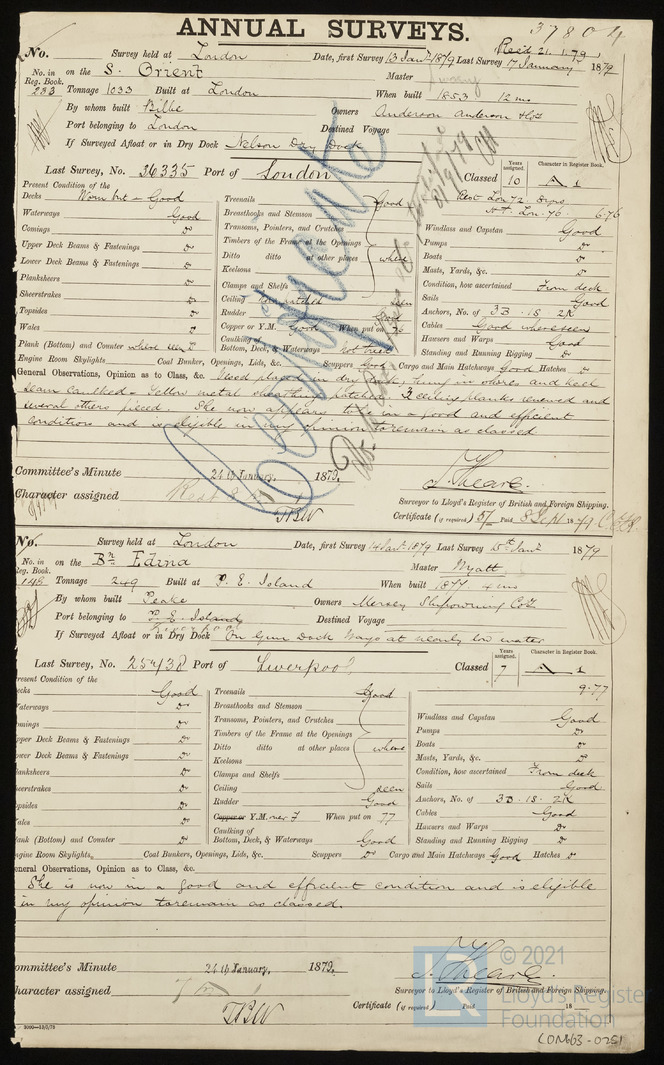 ANNUAL SURVEYS.
37804
Rec'd 21.1.79
No. Survey held at London Date, first Survey 13 Jany 1879 Last Survey 17 January 1879
No. in on the S. Orient Master
Reg. Book.
283 Tonnage 1033 Built at London When built 1853 12 mo
By whom built Bilbe Owners Anderson Anderson & Co
Port belonging to London Destined Voyage
If Surveyed Afloat or in Dry Dock Nelson Dry Dock
Last Survey, No. 36335 Port of London Classed Years assigned. 10 Character in Register Book. A 1
Present Condition of the
Decks Worn but Good Treenails Good
Waterways Good Breasthooks and Stemson
Comings Do Transoms, Pointers, and Crutches Windlass and Capstan Good
Upper Deck Beams & Fastenings Do Timbers of the Frame at the Openings Pumps Do
Lower Deck Beams & Fastenings Do Ditto ditto at other places where Boats Do
Planksheers Do Keelsons Masts, Yards, &c. Do
Sheerstrakes Do Clamps and Shelfs Condition, how ascertained From deck
Topsides Do Ceiling seen Sails Good
Wales Do Rudder Good Anchors, No. of 3B. 1S. 2K
Plank (Bottom) and Counter where seen Do Copper or Y.M. Good When put on 76 Cables Good where seen
Caulking of Bottom, Deck, & Waterways Not tried Hawsers and Warps Good
Standing and Running Rigging Do
Engine Room Skylights Coal Bunker, Openings, Lids, &c. Scuppers Good Cargo and Main Hatchways Good Hatches Do
General Observations, Opinion as to Class, &c. Vessel placed in dry dock, hung in shores and keel
seam caulked - Yellow metal sheathing patched. 3 ceiling planks renewed and
several others pieced. She now appears to be in a good and efficient
condition and is eligible in my opinion to remain as classed
Committee's Minute 24th January, 1879.
Character assigned
TBW
J. Shearer
Surveyor to Lloyd's Register of British and Foreign Shipping.
Certificate (if required) 5/ Paid 8 Sept 1879
No. Survey held at London Date, first Survey 14 Jany 1879 Last Survey 15th Jany 1879
No. in on the Bn Edina Master Wyatt
Reg. Book.
148 Tonnage 249 Built at P. E. Island When built 1877 4 mo
By whom built Peake Owners Mersey Shipowning Co
Port belonging to P. E. Island Destined Voyage
Liverpool
If Surveyed Afloat or in Dry Dock On Gun Dock Ways at nearly low water
Last Survey, No. 25438 Port of Liverpool Classed Years assigned. 7 Character in Register Book. A 1
9.77
resent Condition of the
ecks Good Treenails Good
aterways Do Breasthooks and Stemson
omings Do Transoms, Pointers, and Crutches Windlass and Capstan Good
pper Deck Beams & Fastenings Do Timbers of the Frame at the Openings Pumps Do
ower Deck Beams & Fastenings Do Ditto ditto at other places where Boats Do
anksheers Do Keelsons Masts, Yards, &c. Do
eerstrakes Do Clamps and Shelfs Condition, how ascertained From deck
opsides Do Ceiling seen Sails Good
ales Do Rudder Good Anchors, No. of 3B. 1S. 2K
Copper or Y.M. over 7 When put on 77 Cables Good
ank (Bottom) and Counter Do Caulking of Bottom, Deck, & Waterways Good Hawsers and Warps Do
Standing and Running Rigging Do
ngine Room Skylights, Coal Bunkers, Openings, Lids, &c. Scuppers Do Cargo and Main Hatchways Good Hatches Do
eneral Observations, Opinion as to Class, &c.
She is now in a good and efficient condition and is eligible
in my opinion to remain as classed.
ommittee's Minute 24th January, 1879.
haracter assigned
TBW
J. Shearer
Surveyor to Lloyd's Register of British and Foreign Shipping.
Certificate (if required) Paid 18
© 2021
Lloyd's Register
Foundation
LON663-0251